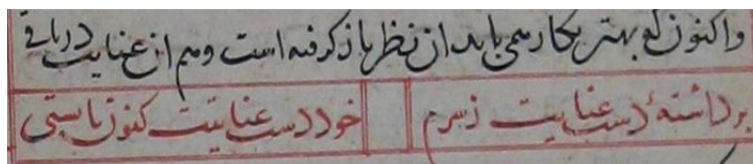 واکنون که بهتر بکار می باید از ان نظر باز کرفته است وهم از عنایت دریافے
برداشتهٔ دست عنایت ز سرم خود دست عنایتت کنون بایستی